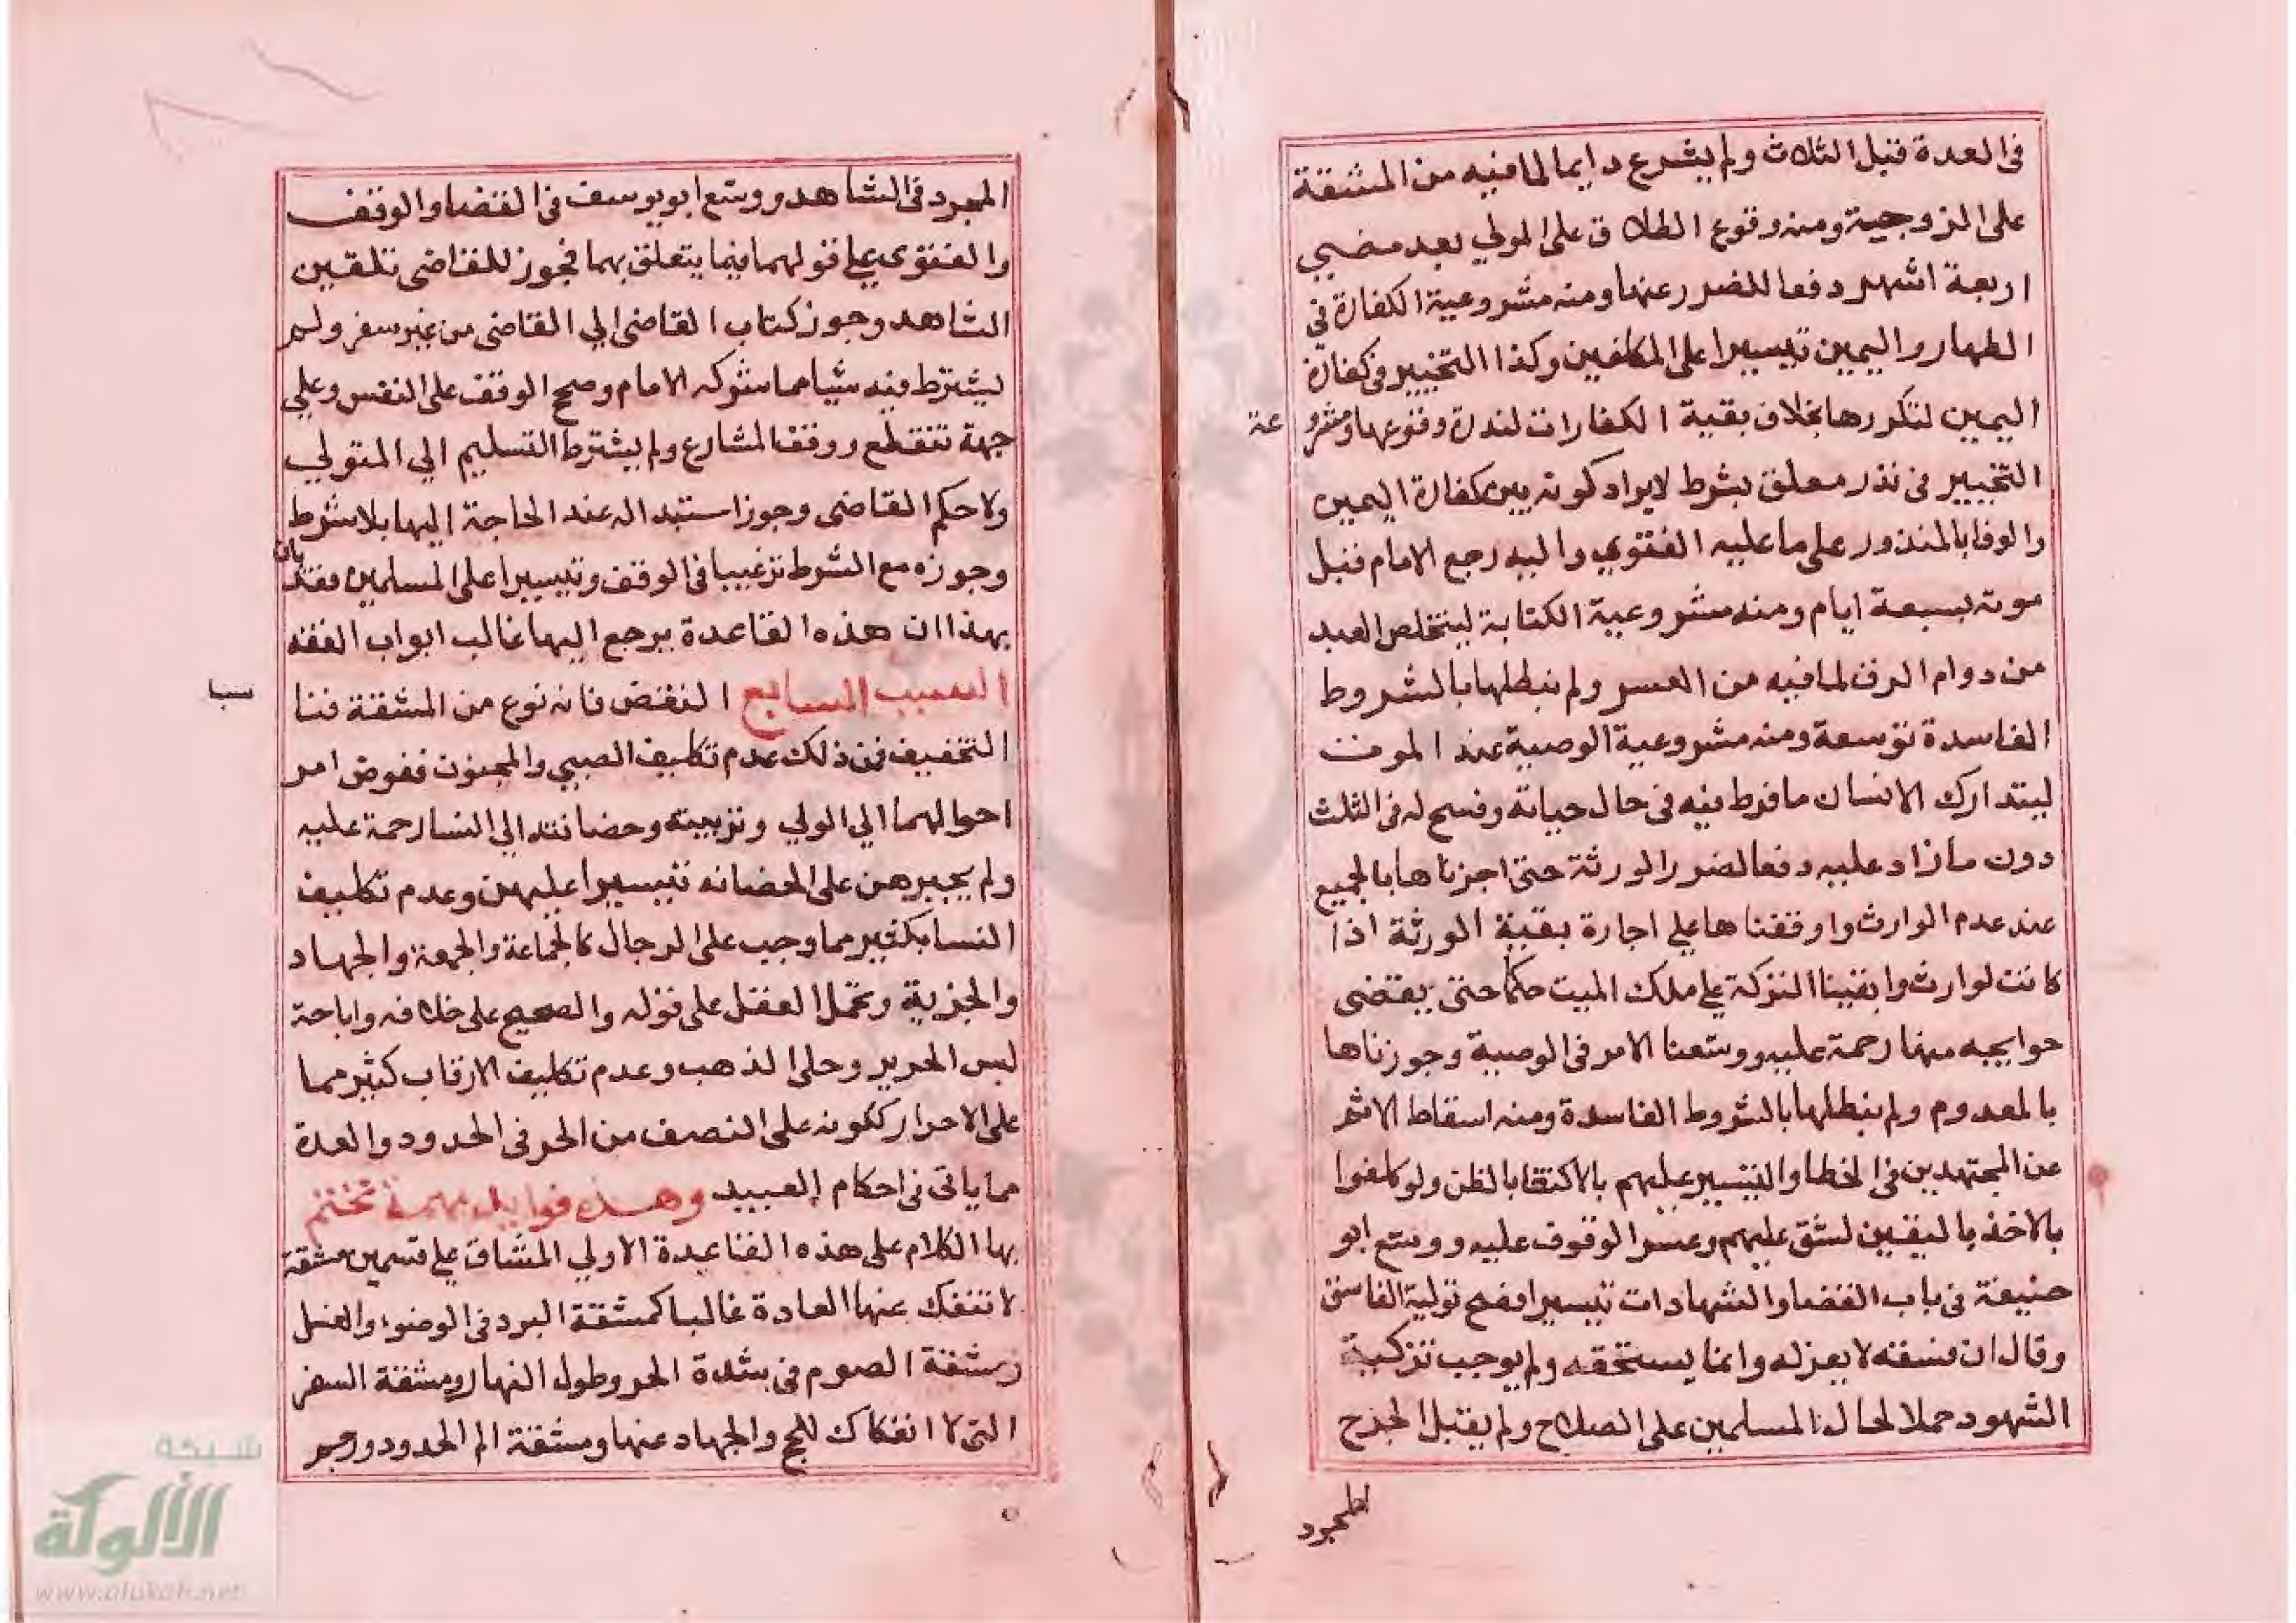 في العدة قبل الثلاث ولم يشرع دايما لما فيه من المشقة
على الزوجية ومنه وقوع الطلاق على المولي بعد مضي
اربعة اشهر دفعا للضرر عنها ومنه مشروعية الكفارة في
الظهار واليمين تيسيرا على المكلفين وكذا التخيير في كفارة
اليمين لتكررها بخلاف بقية الكفارات لندرة وقوعها ومشرو عة
التخيير في نذر معلق بشرط لايراد كونه بين كفارة اليمين
والوفا بالمنذور على ما عليه الفتوي واليه رجع الامام قبل
موته بسبعة ايام ومنه مشروعية الكتابة ليتخلص العبد
من دوام الرق لما فيه من العسر ولم نبطلها بالشروط
الفاسدة توسعة ومنه مشروعية الوصية عند الموت
ليتدارك الانسان ما فرط فيه في حال حياته وفسح له في الثلث
دون ما زاد عليه دفعا لضرر الورثة حتى اجزناها بالجميع
عند عدم الوارث واوقفناها علي اجارة بقية الورثة اذا
كانت لوارث وابقينا التركة علي ملك الميت حكما حتى يقتضى
حوايجه منها رحمة عليه ووسعنا الامر في الوصية وجوزناها
بالمعدوم ولم نبطلها بالشروط الفاسدة ومنه اسقاط الاثم
عن المجتهدين في الخطا والتيسير عليهم بالاكتفا بالظن ولو كلفوا
بالاخذ باليقين لشق عليهم وعسر الوقوف عليه ووسع ابو
حنيفة في باب القضا والشهادات تيسيرا فصح تولية الفاسق
وقال ان فسقه لا يعزله وانما يستحقه ولم يوجب تزكية
الشهود حملا لحال المسلمين على الصلاح ولم يقبل الجرح
المجرد
المجرد في الشاهد ووسع ابو يوسف في القضا والوقف
والفتوى علي قولهما فيما يتعلق بهما فجوز للقاضى تلقين
الشاهد وجوز كتاب القاضى الي القاضى من غير سفر ولم
يشترط فيه شيا مما شركه الامام وصحح الوقف على النفس وعلي
جهة تنقطع ووقف المشارع ولم يشترط التسليم الي المتولي
ولا حكم القاضى وجوز استبداله عند الحاجة اليها بلا شرط
وجوزه مع الشرط ترغيبا في الوقف وتيسيرا على المسلمين فقد بان
بهذا ان هذه القاعدة يرجع اليها غالب ابواب الفقه
السبب السابع النقص فانه نوع من المشقة فنا سبا
التخفيف فمن ذلك عدم تكليف الصبي والمجنون ففوض امر
احوالهما الي الولي وتربيته وحضانته الي النسا رحمة عليه
ولم يجبرهن على الحضانه تيسيرا عليهن وعدم تكليف
النسا بكثير مما وجب على الرجال كالجماعة والجمعة والجهاد
والجزية وتحمل العقل على قوله والصحيح على خلافه واباحة
لبس الحرير وحلي الذهب وعدم تكليف الارقاب كثير مما
على الاحرار ككونه على النصف من الحر في الحدود والعدة
مما ياتى في احكام العبيد وهذه فوايد مهمة نختتم
بها الكلام على هذه القاعدة الاولي المشاق علي قسمين مشقة
لا تنفك عنها العادة غالبا كمشقة البرد في الوضوء والغسل
ومشقة الصوم في شدة الحر وطول النهار ومشقة السفر
التى لا انفكاك للحج والجهاد عنها ومشقة الم الحدود ورجم
شبكة
الألوكة
www.alukah.net